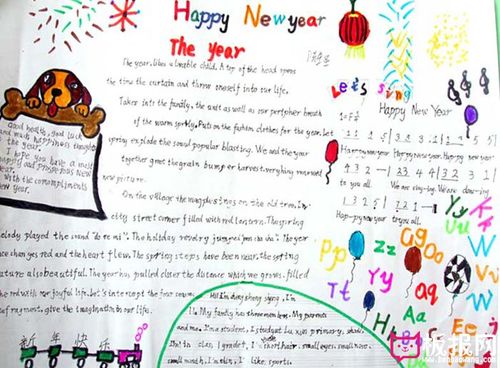 Happy New year
The year
The year, likes a lovable child. A top of the head opens
the time the curtain and throws oneself into our life.
Takes into the family, the exit as well as our peripher breath
of the warm spring. Puts on the fashion clothes for the year. Let
spring explode the sound popular blasting. We and the year
together greet the grain bumper harvest, everything new and
new picture.
On the village the
city street corner filled with red lantern. The spring
melody played the sound "do re mi". The holiday revelry
The year
face changes red and the heart flew. The spring steps have been near, the spring
nature also beautiful. The year has pulled closer the distance which we grows, filled
the red with our joyful life. Let's interrupt the four
of raiment, give the imagination to our life.
Good health, good luck
and much happiness throughout
the year.
I hope you have a most
happy and prosperous New
year.
with the compliments
new year.
Let's sing
Happy New Year
1=F
Happy new year Happy new year. Happy new year
to you all. We are singing. We are dancing
Happy new year to you all.
Yy
Uu
Vv
Pp
Zz
Gg
Oo
Ww
Tt
Yy
Qq
Aa
Hh
Ee
Hi! I'm dong sheng sheng. I'm
11. My family has three members. My parents
and me. I'm a student, I study
primary
in class 1 grade
short hair, small eyes, small nose,
small mouth, I'm thin, I like sports.
新年快乐
板报网